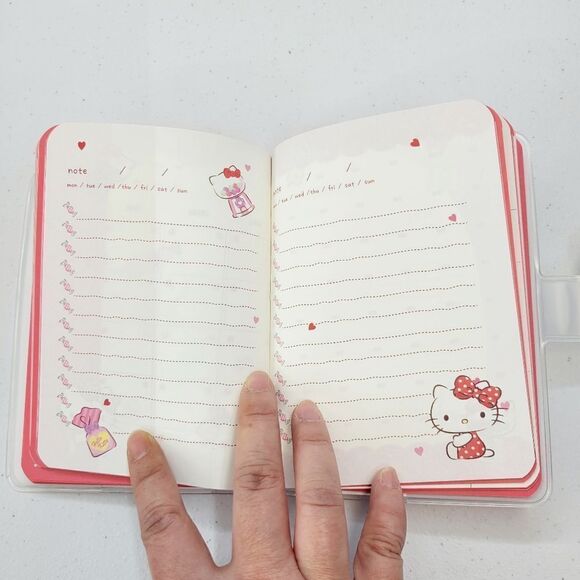 note / /
mon / tue / wed / thu / fri / sat / sun
note / /
/ tue / wed / thu / fri / sat / sun